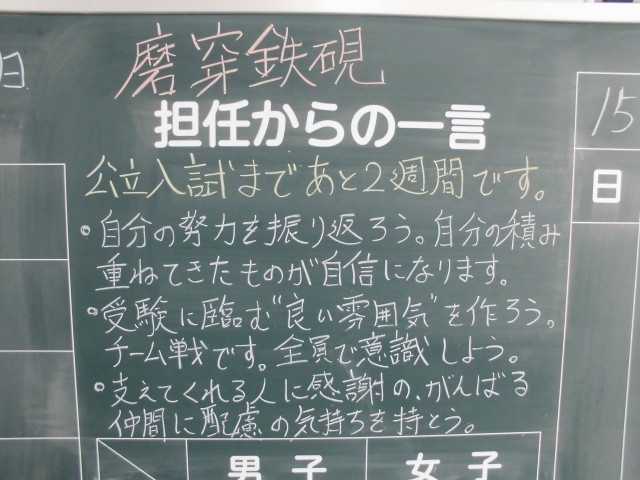 磨穿鉄硯
担任からの一言
日
15
日
公立入試まであと2週間です。
・自分の努力を振り返ろう。自分の積み
重ねてきたものが自信になります。
・受験に臨む"良い雰囲気"を作ろう。
チーム戦です。全員で意識しよう。
・支えてくれる人に感謝の、がんばる
仲間に配慮の気持ちを持とう。
男子
女子